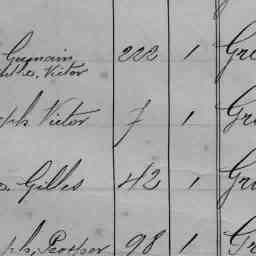 Germain 222 1 Gre
Victor
ph Victor 7 1 Gr
Gilles 42 1 Gra
ph, Prosper 98 1 Gr